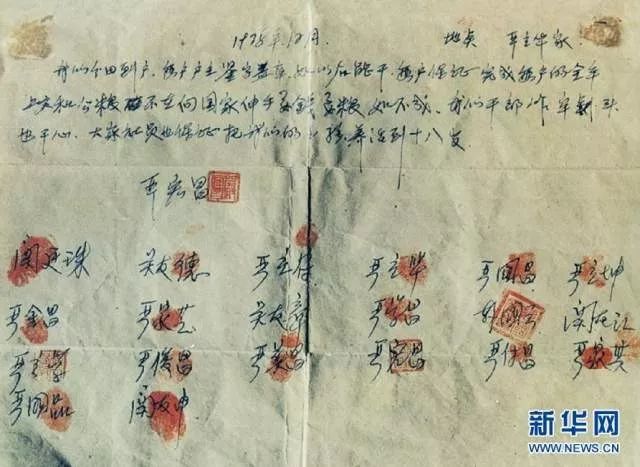 1978年12月. 地点 严立华家
我们分田到户,每户户主签字盖章,如以后能干,每户保证完成每户的全年
上交和公粮 不在向国家伸手要钱要粮,如不成,我们干部作牢刹头
也干心,大家社员也保证把我们的小孩养活到十八岁.
严宏昌
关廷珠 关友德 严立符 严立华 严国昌 严立坤
严金昌 严家芝 关友章 严学昌 韩国云 关友江
严立学 严俊昌 严美昌 严宏昌 严付昌 严家其
严国品 关友申
新华网
WWW.NEWS.CN